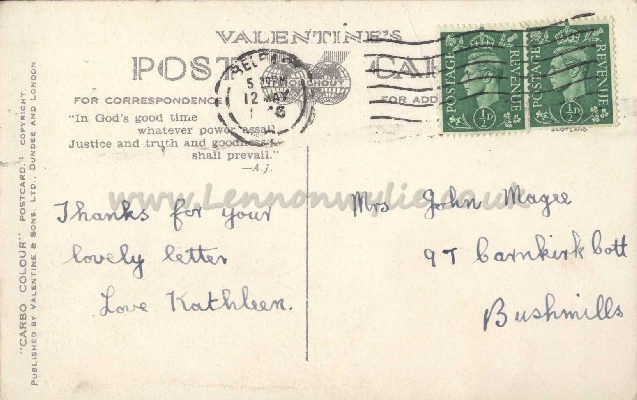 VALENTINE'S
POST CARD
FOR CORRESPONDENCE
FOR ADD
"In God's good time
whatever power assail
Justice and truth and goodness
shall prevail."
—A.J.
5 30 PM
12 MAY
POSTAGE REVENUE
½D
POSTAGE REVENUE
½D
SCOTLAND
www.Lennonwylie.co.uk
Thanks for your
lovely letter
Love Kathleen.
Mrs John Magee
97 Carnkirk Cott
Bushmills
"CARBO COLOUR" POSTCARD. COPYRIGHT.
PUBLISHED BY VALENTINE & SONS, LTD., DUNDEE AND LONDON